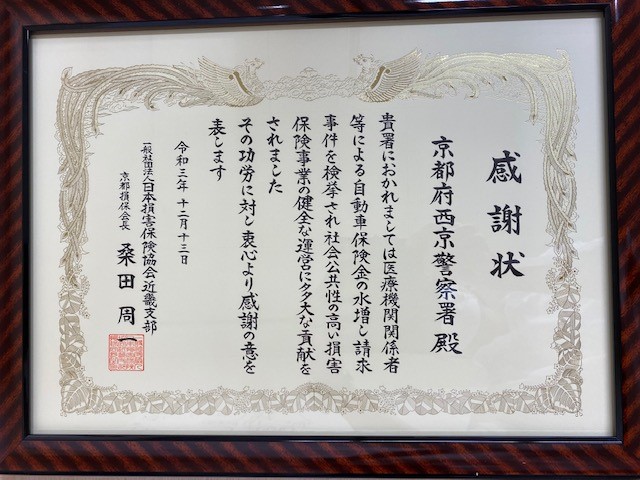 感謝状
京都府西京警察署殿
貴署におかれましては医療機関関係者
等による自動車保険金の水増し請求
事件を検挙され社会公共性の高い損害
保険事業の健全な運営に多大な貢献を
されました
その功労に対し衷心より感謝の意を
表します
令和三年十二月十三日
一般社団法人日本損害保険協会近畿支部
京都損保会長 桑田周一